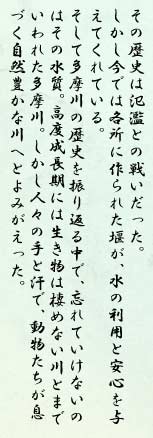 その歴史は氾濫との戦いだった。
しかし今では各所に作られた堰が、水の利用と安心を与
えてくれている。
そして多摩川の歴史を振り返る中で、忘れていけないの
はその水質。高度成長期には生き物は棲めない川とまで
いわれた多摩川。しかし人々の手と汗で、動物たちが息
づく自然豊かな川へとよみがえった。